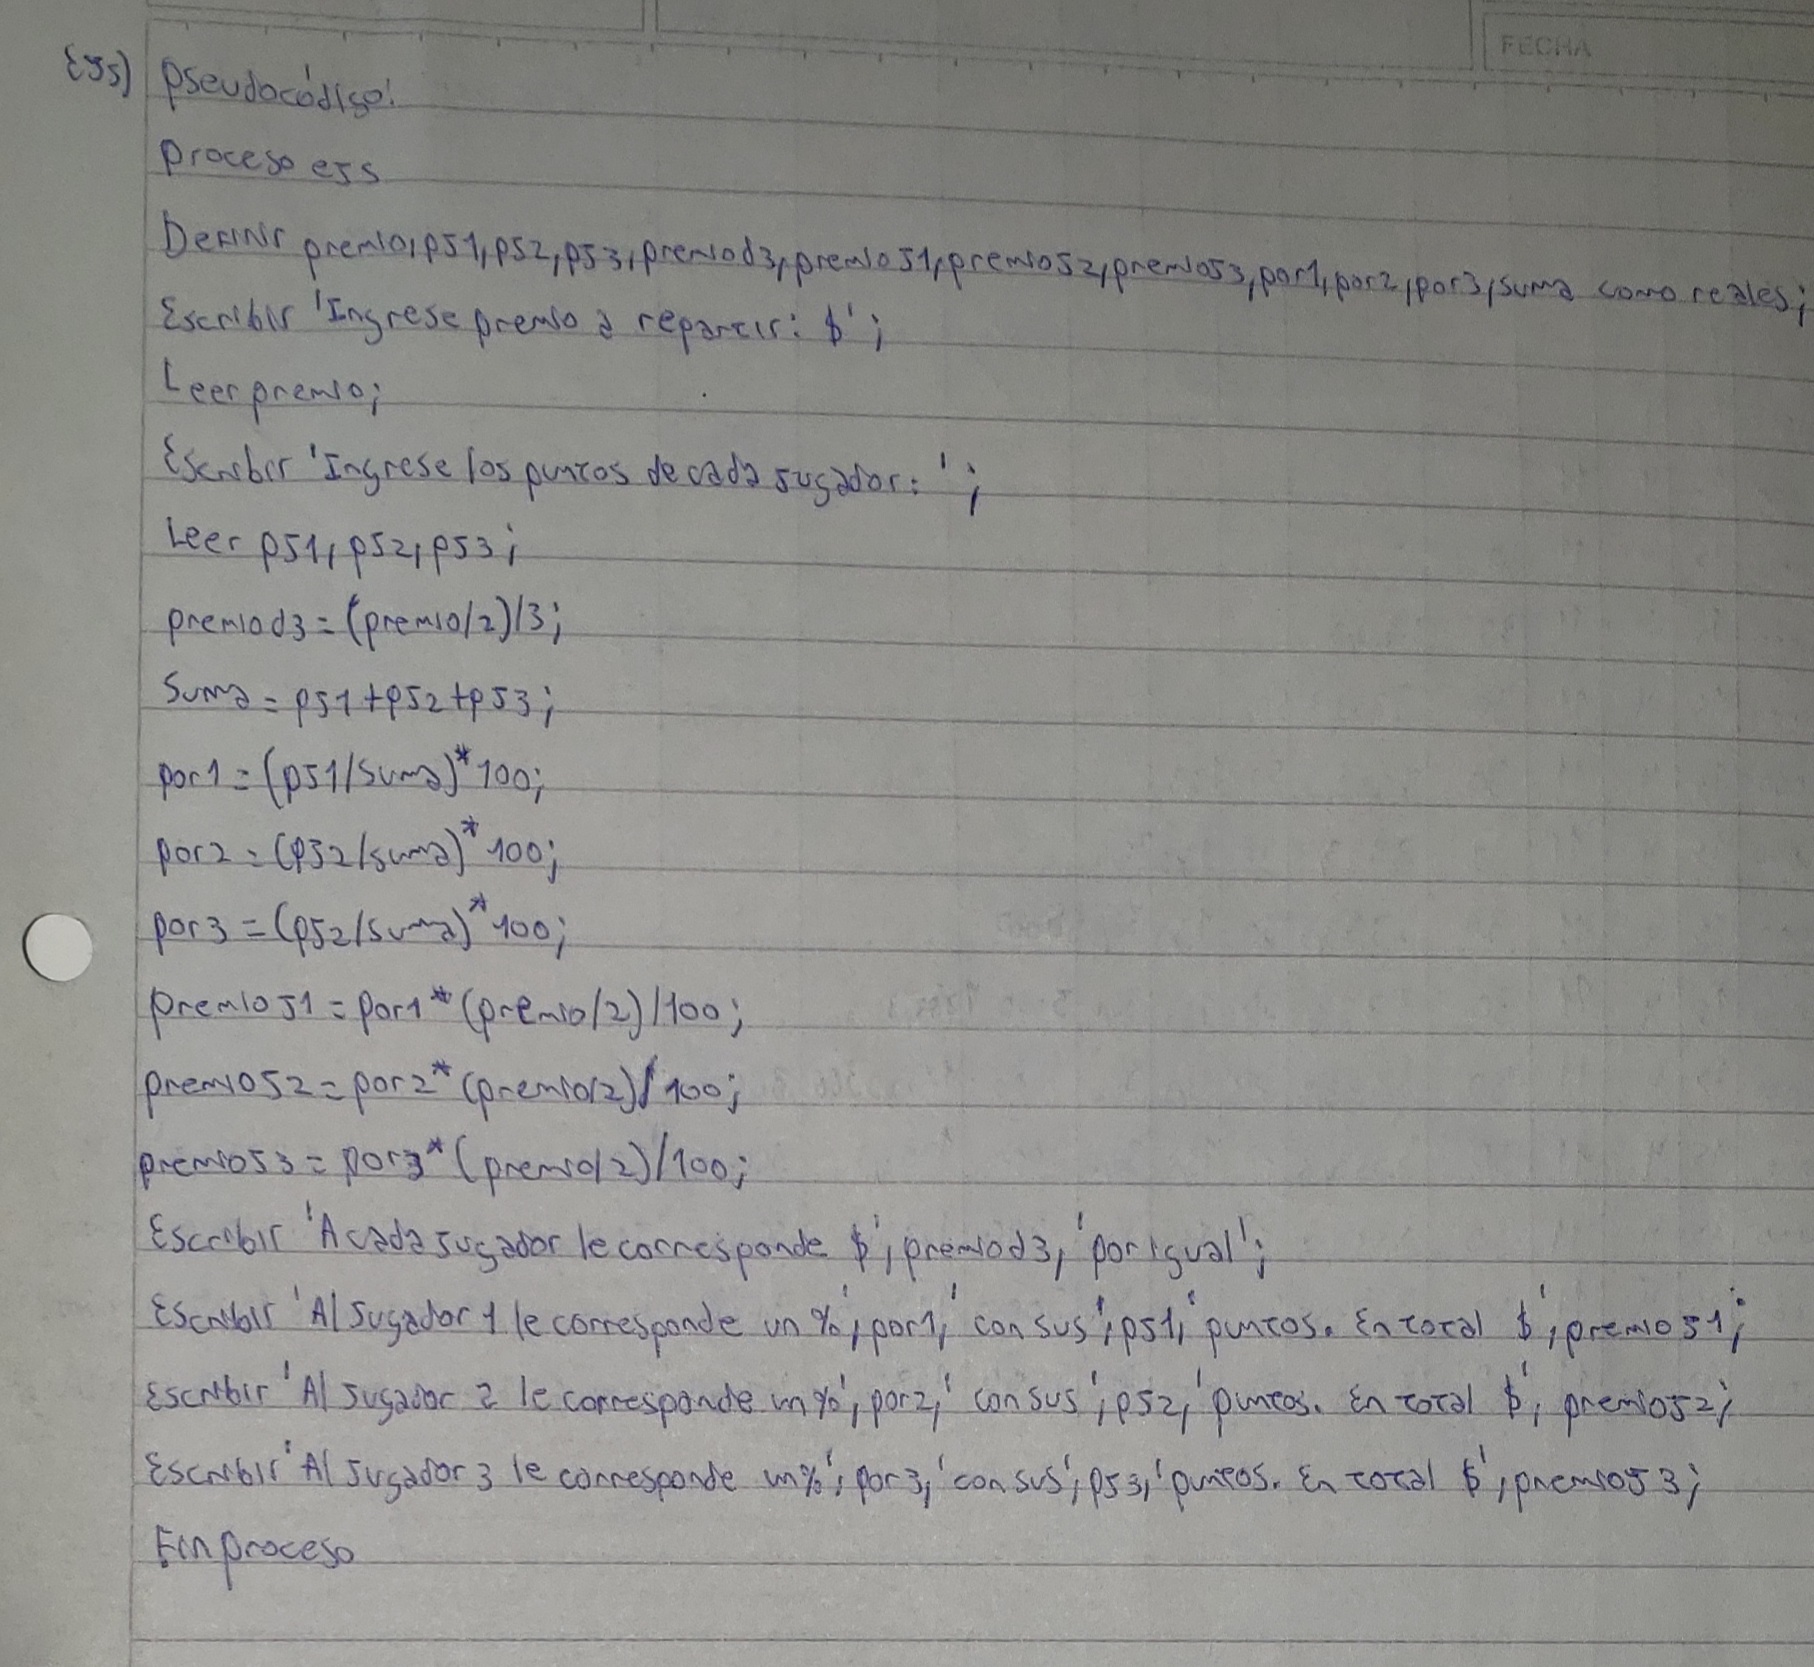 FECHA
Ej5) Pseudocódigo:
Proceso ej5
Definir premio, pj1, pj2, pj3, premiod3, premioj1, premioj2, premioj3, por1, por2, por3, suma como reales;
Escribir 'Ingrese premio a repartir: $';
Leer premio;
Escribir 'Ingrese los puntos de cada jugador: ';
Leer pj1, pj2, pj3;
premiod3 = (premio/2)/3;
Suma = pj1 + pj2 + pj3;
por1 = (pj1/suma)*100;
por2 = (pj2/suma)*100;
por3 = (pj2/suma)*100;
premioj1 = por1*(premio/2)/100;
premioj2 = por2*(premio/2)/100;
premioj3 = por3*(premio/2)/100;
Escribir 'A cada jugador le corresponde $', premiod3, 'por igual';
Escribir 'Al jugador 1 le corresponde un %', por1, 'con sus', pj1, 'puntos. En total $', premioj1;
Escribir 'Al jugador 2 le corresponde un %', por2, 'con sus', pj2, 'puntos. En total $', premioj2;
Escribir 'Al jugador 3 le corresponde un %', por3, 'con sus', pj3, 'puntos. En total $', premioj3;
Finproceso